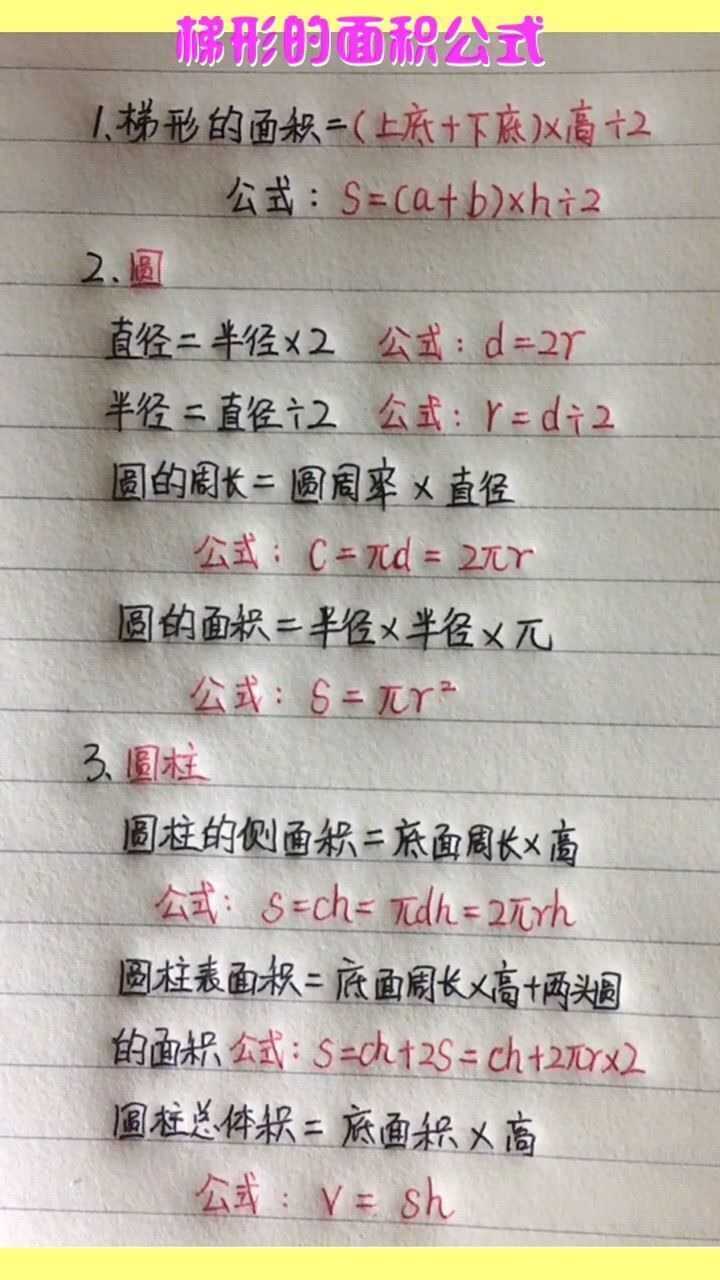 梯形的面积公式
1、梯形的面积=(上底+下底)×高÷2
公式：S=(a+b)×h÷2
2、圆
直径=半径×2 公式：d=2r
半径=直径÷2 公式：r=d÷2
圆的周长=圆周率×直径
公式：C=πd=2πr
圆的面积=半径×半径×π
公式：S=πr²
3、圆柱
圆柱的侧面积=底面周长×高
公式：S=ch=πdh=2πrh
圆柱表面积=底面周长×高+两头圆
的面积 公式：S=ch+2S=ch+2πr×2
圆柱总体积=底面积×高
公式：V=sh